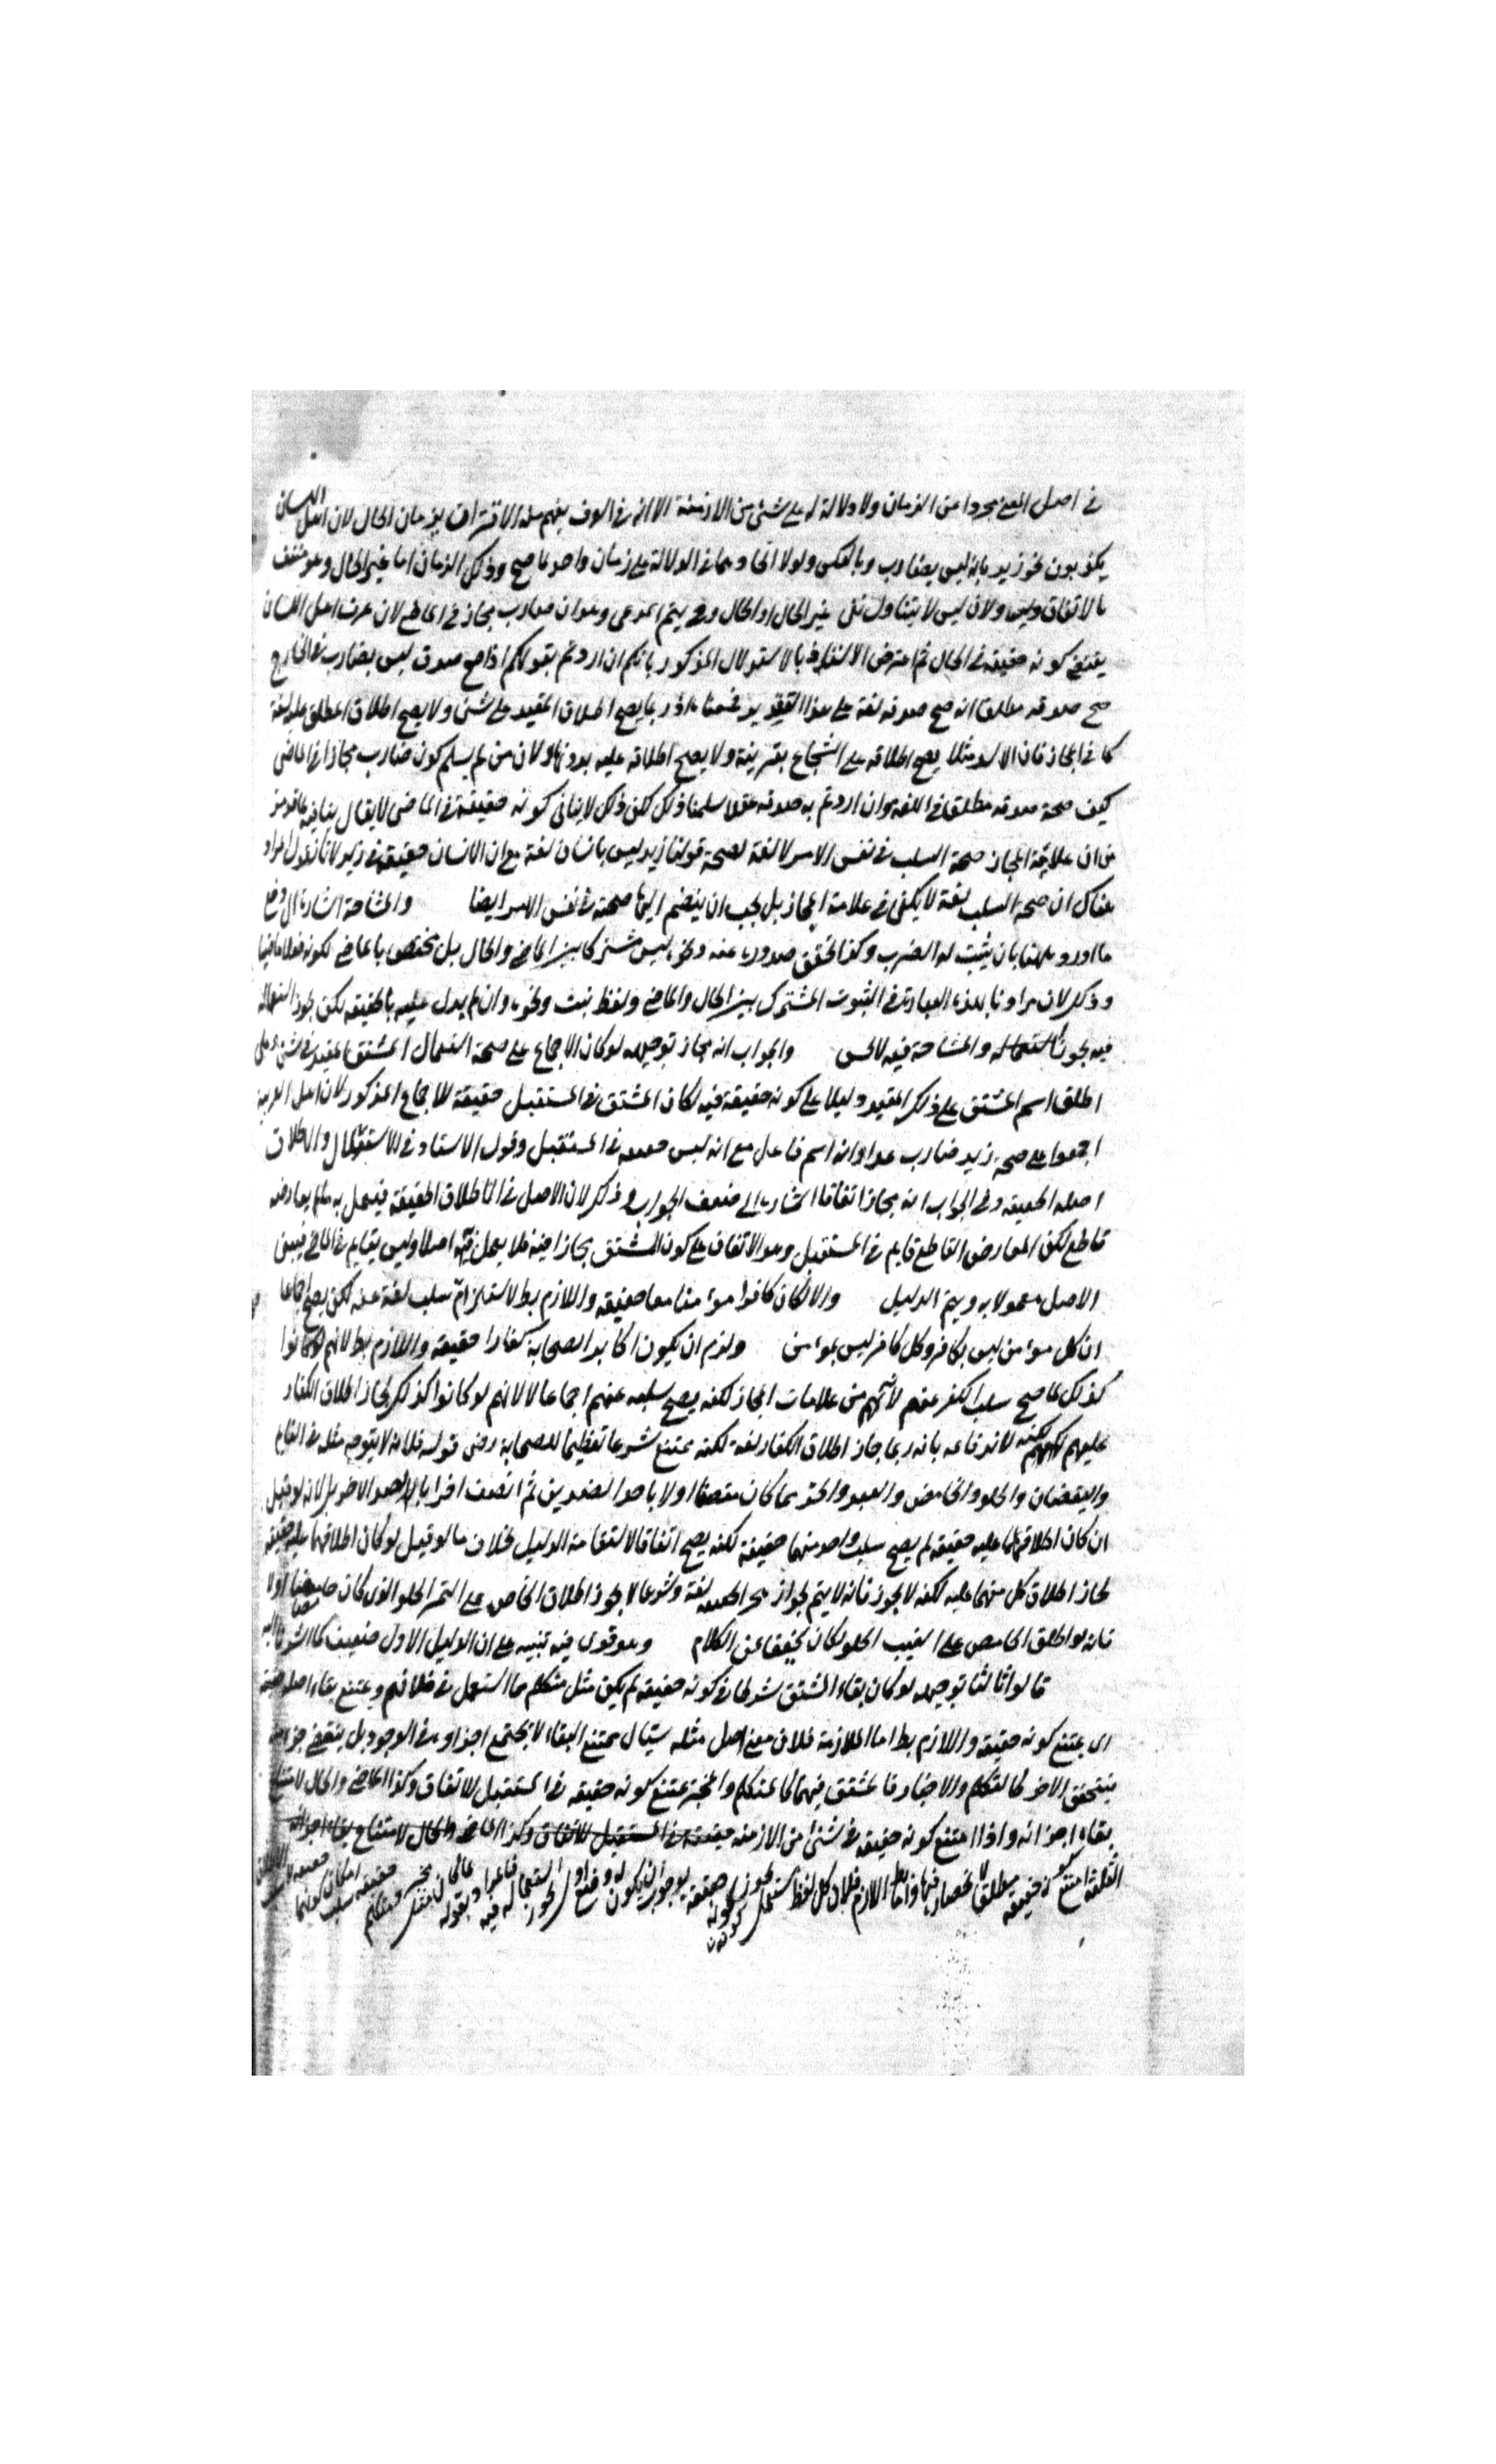 في اصل المعنى مجردا عن الزمان ولا دلالة له على شئ من الازمنة الا انه في العرف يفهم منه الاقتران بزمان الحال لان اهل اللسان
يكذبون نحو زيد بانه ليس بضارب وبالعكس ولولا اتحادهما في الدلالة على زمان واحد لما صح وذلك الزمان اما غير الحال وهو منتف
بالاتفاق وليس ولان ليس لا يتناول نفى غير الحال او الحال وح يتم المدعى وهو ان ضارب مجاز في الماضي لان عرف اهل اللسان
يقتضي كونه حقيقة في الحال ثم اعترض بالاستدلال المذكور بانكم ان اردتم بقولكم اذا صح صدق ليس بضارب في الخارج
صح صدقه مطلقا انه صح صدقه لغة على هذا التقدير فممنوع اذ ربما يصح اطلاق المقيد على شئ ولا يصح اطلاق المطلق عليه لغة
كما في المجاز فان الاسد مثلا يصح اطلاقه على الشجاع بقرينة ولا يصح اطلاقه عليه بدونها ولان من لم يسلم كون ضارب مجازا في الماضي
كيف صحة صدقه مطلقا في اللغة وان اردتم به صدقه عقلا سلمنا ذلك لكن ذلك لا ينافي كونه حقيقة في الماضي لا يقال ينافيه لما تقدم
من ان علامة المجاز صحة السلب في نفس الامر لا لغة لصحة قولنا زيد ليس بانسان لغة مع ان الانسان حقيقة في زيد لانا نقول المراد
هناك ان صحة السلب لغة لا يكفي في علامة المجاز بل يجب ان ينضم اليها صحته في نفس الامر ايضا والمشاحة اشارة الى دفع
ما اورد ههنا بان يثبت له الضرب وكذا تحقق صدوره عنه ونحوه ليس مشتركا بين الماضي والحال بل مختص بالماضي لكونه فعلا ماضيا
وذكر لان مرادنا بهذه العبارة الثبوت المشترك بين الحال والماضي ولفظ ثبت ونحوه وان لم يدل عليه بالحقيقة لكن يجوز استعماله
فيه تجوزا والمشاحة فيه لا تحسن والجواب انه مجاز توجيهه لو كان الاجماع على صحة استعمال المشتق المقيد في شئ وعلى
اطلاق اسم المشتق على ذلك المقيد دليلا على كونه حقيقة فيه لكان المشتق في المستقبل حقيقة للاجماع المذكور لان اهل العربية
اجمعوا على صحة زيد ضارب غدا وانه اسم فاعل مع انه ليس حقيقة في المستقبل وقول الاستاد في الاستقلال والاطلاق
اصله الحقيقة وفي الجواب انه مجاز اتفاقا اشارة الى ضعف الجواب وذكر لان الاصل في الاطلاق الحقيقة فيعمل به ما لم يعارضه
قاطع لكن المعارض القاطع قايم في المستقبل وهو الاتفاق على كون المشتق مجازا فيه فلا يعمل فيه اصلا وليس بقايم في الماضي فيبقى
الاصل معمولا به ويتم الدليل والا لكان كافرا مؤمنا معا حقيقة واللازم بط لاستلزام سلب لغة عنه لكن يصح اجماعا
ان كل مؤمن ليس بكافر وكل كافر ليس بمؤمن ولزم ان يكون اكابر الصحابة كفارا حقيقة واللازم بط لانهم لو كانوا
كذلك لما صح سلب الكفر عنهم لانهم من علامات المجاز لكنه يصح سلبه عنهم اجماعا لا لانهم لو كانوا كذلك لجاز اطلاق الكفار
عليهم لكنه لاندفاعه بانه ربما جاز اطلاق الكفار لغة لكنه يمتنع شرعا تعظيما للصحابة رضى قوله فلانه لا يتوجه مثله في القائم
واليقضان والحلو والحامض والعبد والحر مما كان متصفا اولا باحد الضدين ثم اتصف اخرا بالضد الاخر بل لانه لو قيل
ان كان اطلاقهما عليه حقيقة لم يصح سلب واحد منهما حقيقة لكنه يصح اتفاقا لاستقامة الدليل بخلاف ما لو قيل لو كان اطلاقهما عليه حقيقة
لجاز اطلاق كل منهما عليه لكنه لا يجوز فانه لا يتم لجواز لغة وشرعا لا يجوز اطلاق الحامض على التمر الحلو الذي كان حامضا اولا
فانه لو اطلق الحامض على العنب الحلو لكان عن الكلام وهو قوى فيه تنبيه على ان الدليل الاول ضعيف كما اشرنا اليه
قالوا ثالثا توجيهه لو كان بقاء المشتق شرطا في كونه حقيقة لم يكن مثل متكلم مما استعمل في ويمتنع بقاء اصله حقيقة
اى يمتنع كونه حقيقة واللازم بط اما الملازمة فلان معنى اصل مثله سيال يمتنع البقاء لا تجتمع اجزاؤه في الوجود بل ينقضي جزء
فيتحقق الاخر كالتكلم والاخبار فالمشتق فيهما كالمتكلم والمخبر يمتنع كونه حقيقة في المستقبل للاتفاق وكذا الماضي والحال لامتناع
بقاء اجزائه واذا امتنع كونه حقيقة في شئ من الازمنة في المستقبل للاتفاق وكذا الماضي والحال لامتناع بقاء اجزائه
الثلثة امتنع كونه حقيقة مطلقا لانحصارها فيها واما بط اللازم فلان كل لفظ مستعمل